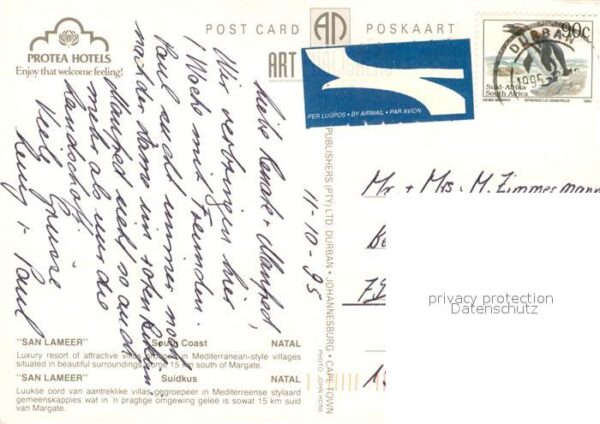 PROTEA HOTELS
Enjoy that welcome feeling!
POST CARD AD POSKAART
ART PUBLISHERS
PER LUGPOS • BY AIRMAIL • PAR AVION
90c
DURBAN
1995
Suid-Afrika
South Africa
SPHENISCUS DEMERSUS
1993
Liebe Renate + Manfred,
Wir verbringen hier
1 Woche mit Freunden.
Paul sucht immer noch
nach der dame im roten Bikini.
Manfred
mehr als nur die
Landschaft.
Viele Grüsse
+ Paul
11-10-95
PUBLISHERS (PTY) LTD. DURBAN • JOHANNESBURG • CAPE TOWN
PHOTO: JOHN HONE
Mr + Mrs M. Zimmermann
privacy protection
Datenschutz
"SAN LAMEER" South Coast NATAL
Luxury resort of attractive villas grouped in Mediterranean-style villages
situated in beautiful surroundings some 15 km south of Margate.
"SAN LAMEER" Suidkus NATAL
Luukse oord van aantreklike villas gegroepeer in Mediterreense stylaard
gemeenskappies wat in 'n pragtige omgewing geleë is sowat 15 km suid
van Margate.